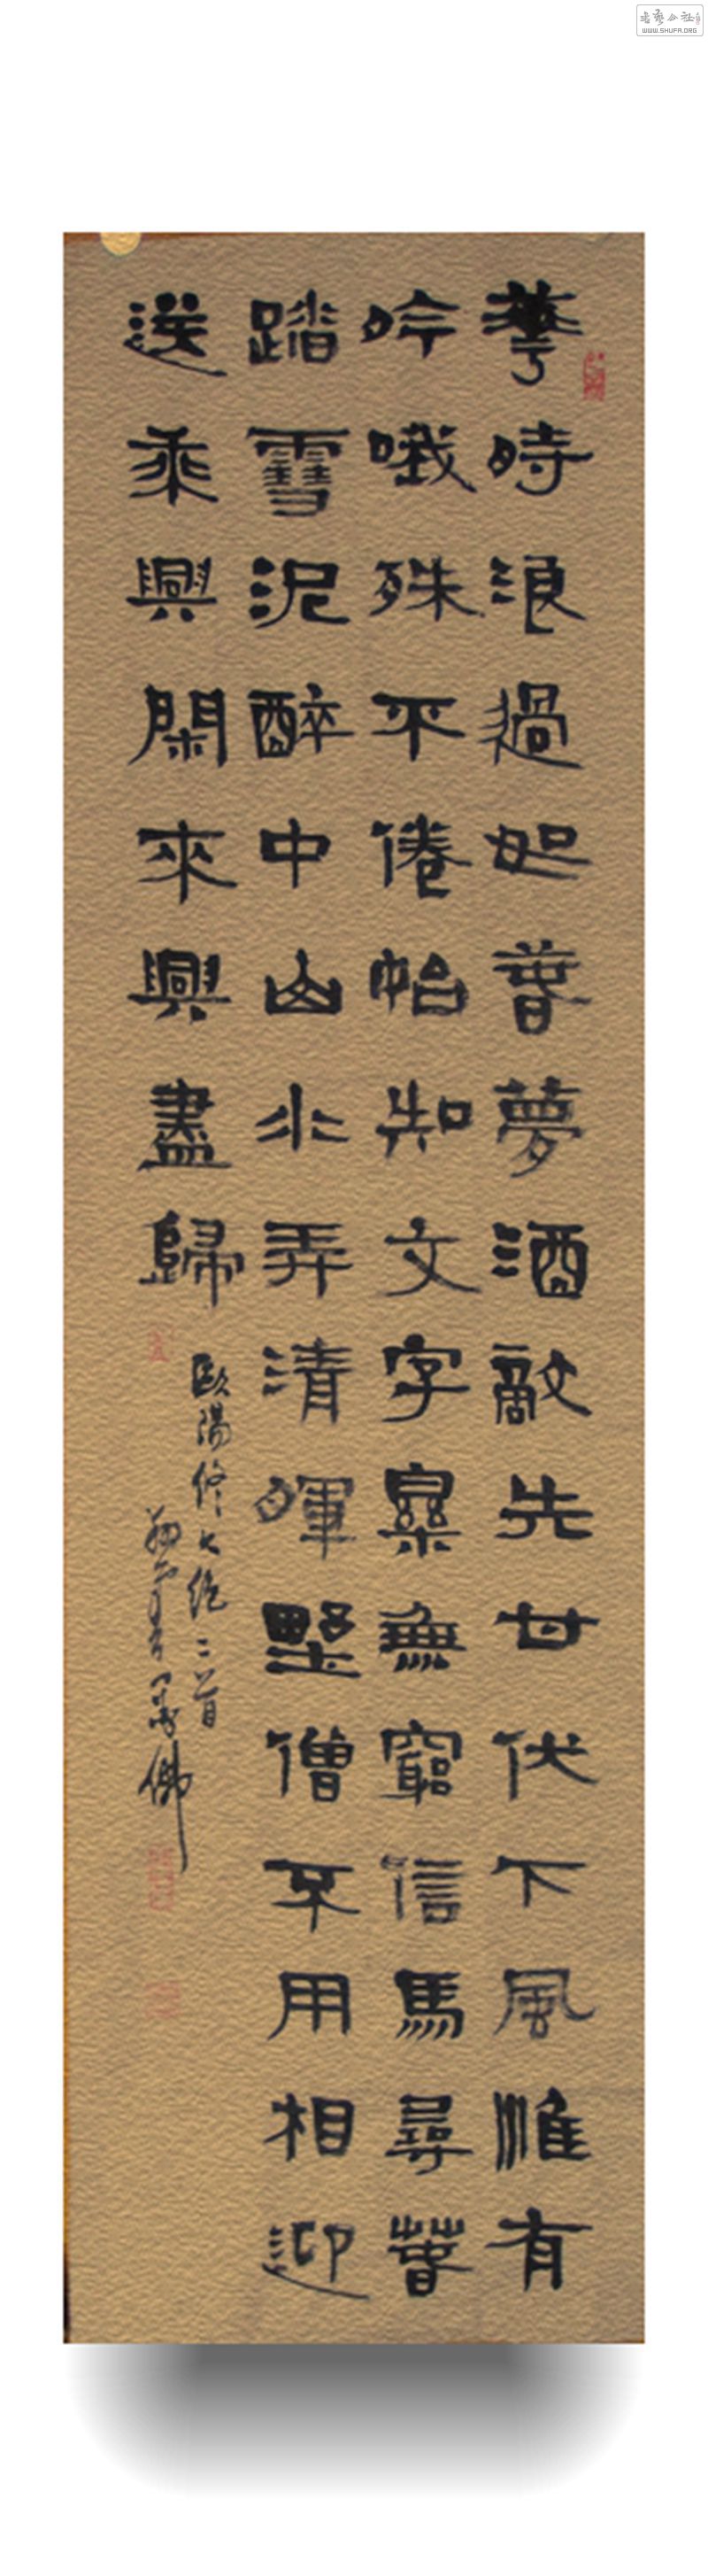 書藝公社
WWW.SHUFA.ORG
華時浪過如春夢酒敵先甘伏下風惟有
吟哦殊不倦始知文字樂無窮信馬尋春
踏雪泥醉中山水弄清暉野僧不用相迎
送乘興閑來興盡歸
歐陽修七絕二首
佛